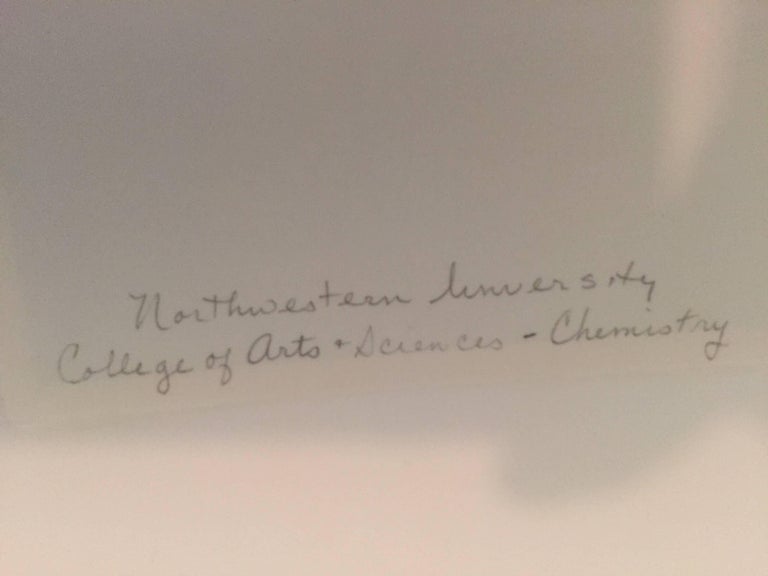 Northwestern University
College of Arts + Sciences - Chemistry